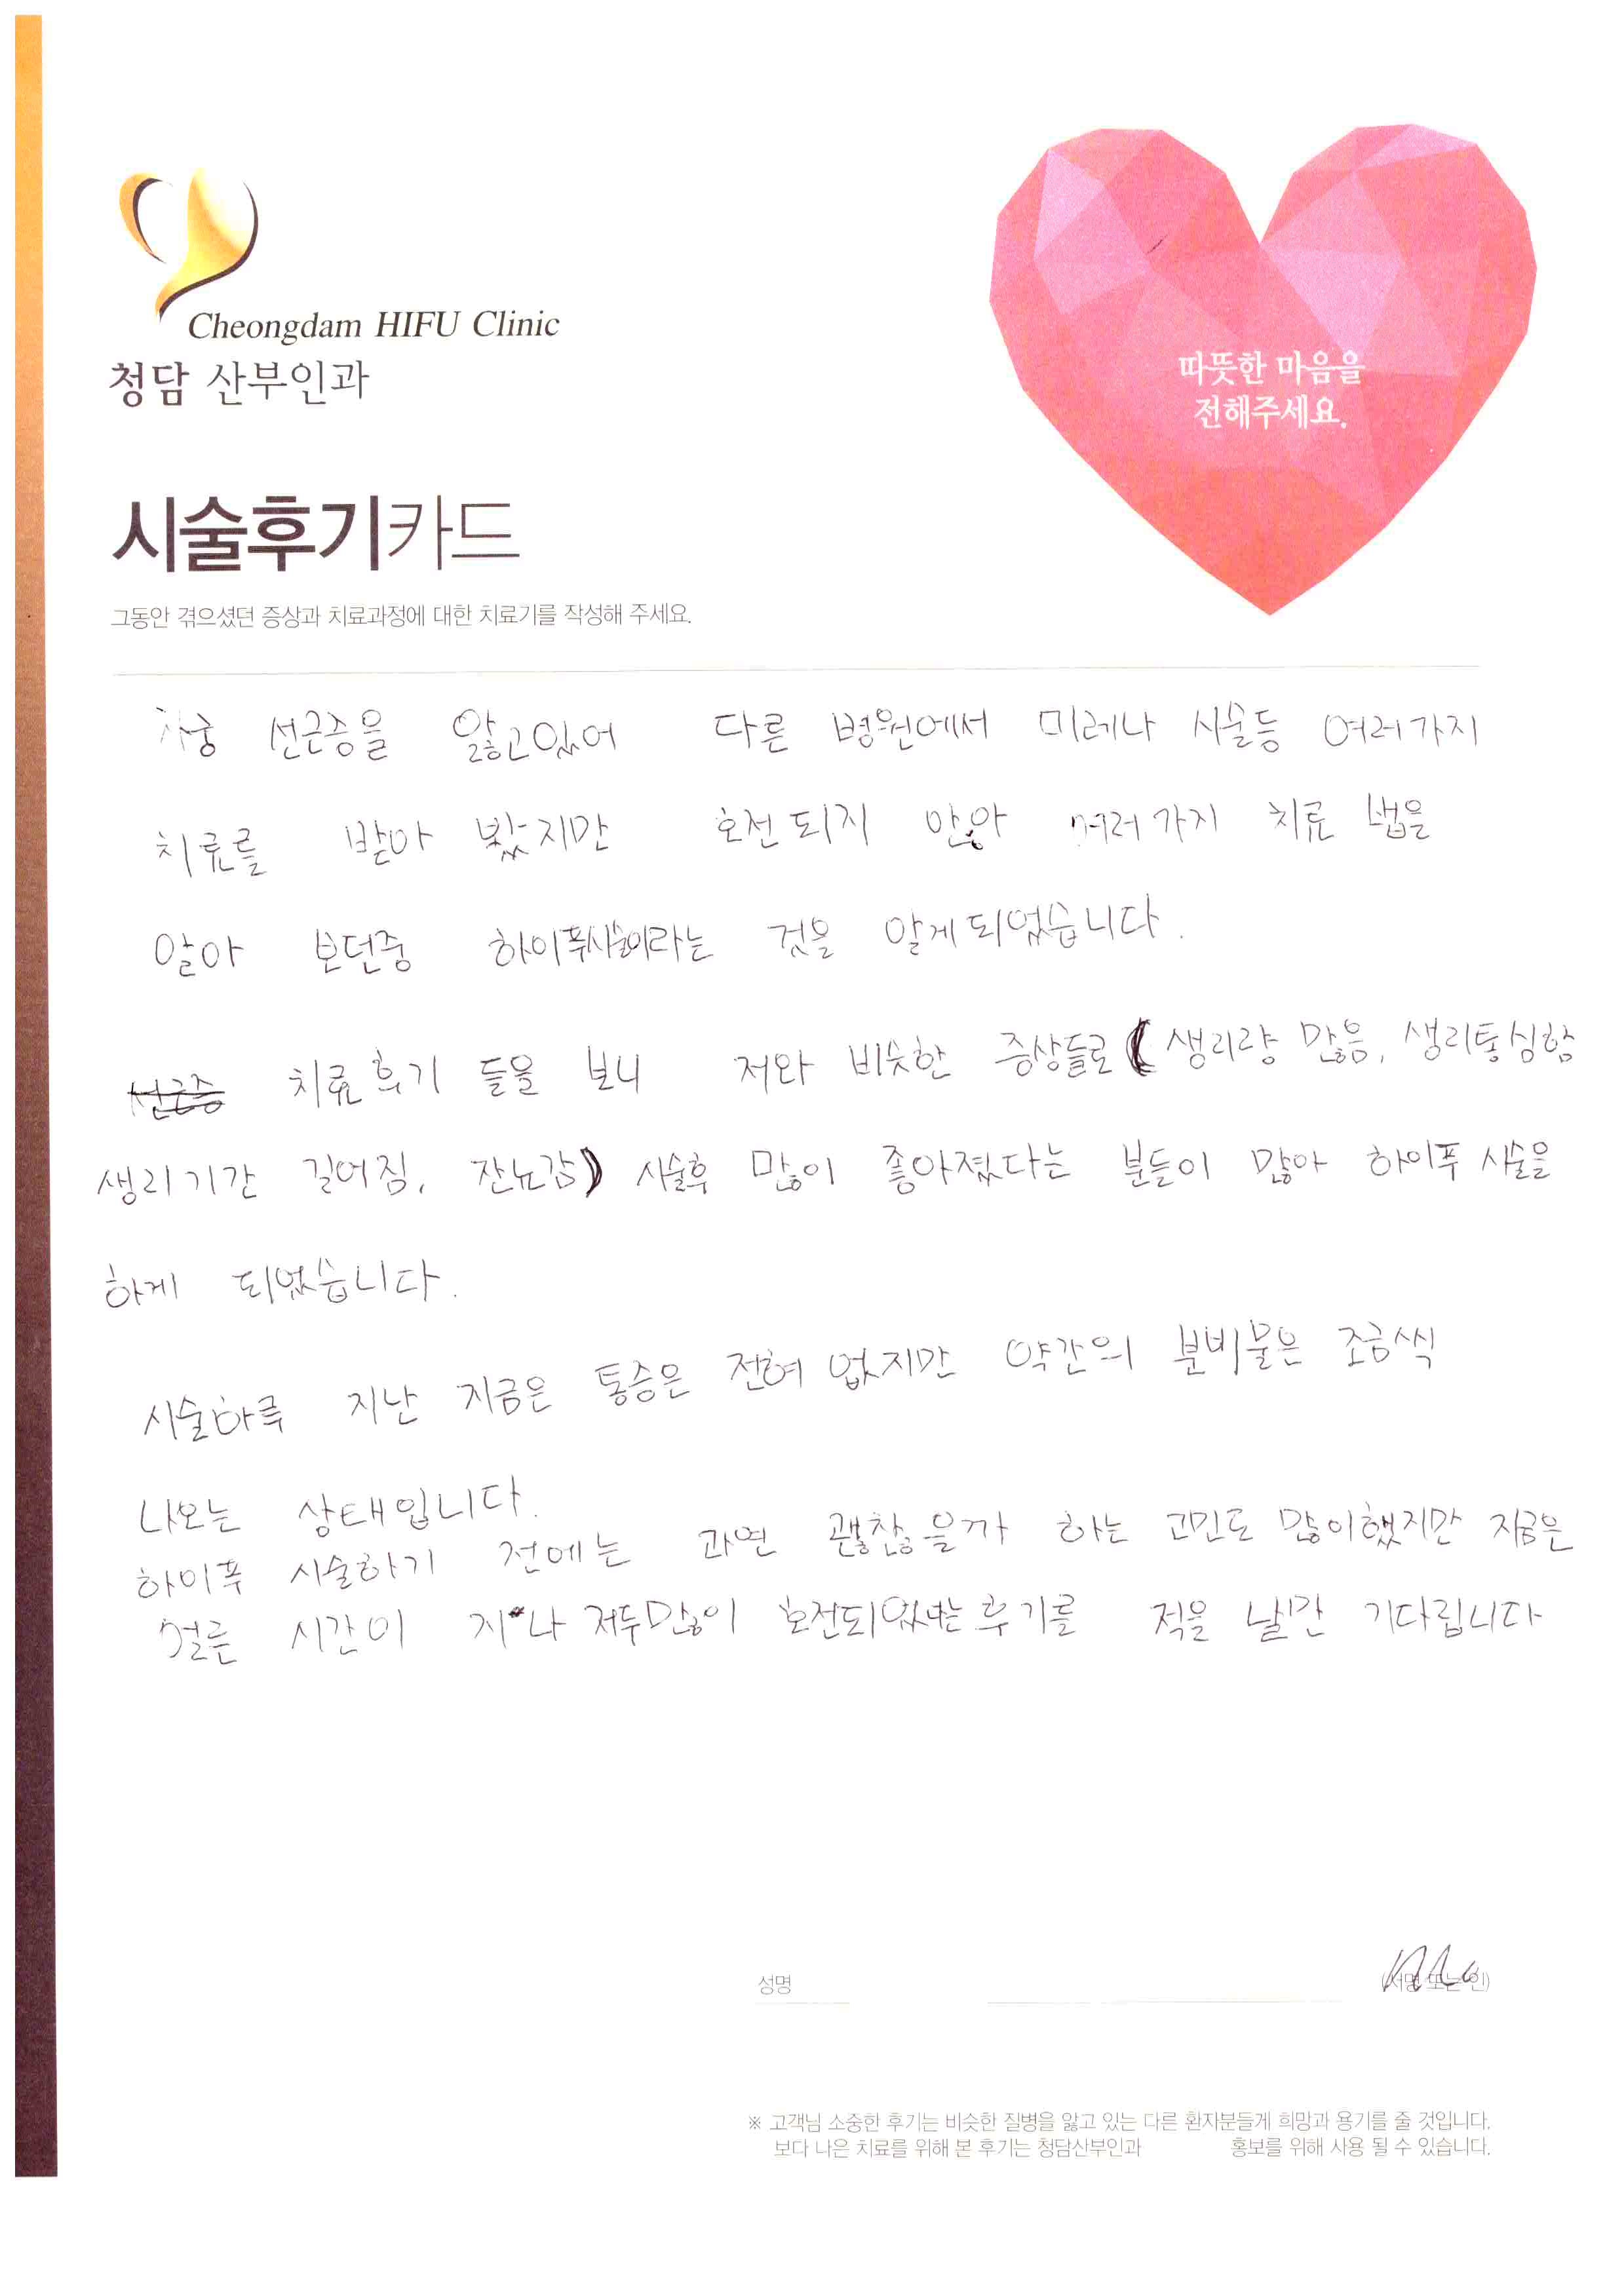 Cheongdam HIFU Clinic
청담 산부인과
따뜻한 마음을
전해주세요.
시술후기카드
그동안 겪으셨던 증상과 치료과정에 대한 치료기를 작성해 주세요.
자궁 선근증을 앓고있어 다른 병원에서 미레나 시술등 여러가지
치료를 받아 봤지만 호전되지 않아 여러가지 치료 법을
알아 보던중 하이푸시술이라는 것을 알게되었습니다.
선근증 치료후기 들을 보니 저와 비슷한 증상들로 (생리량 많음, 생리통심함
생리기간 길어짐, 잔뇨감) 시술후 많이 좋아졌다는 분들이 많아 하이푸 시술을
하게 되었습니다.
시술하루 지난 지금은 통증은 전혀 없지만 약간의 분비물은 조금씩
나오는 상태입니다.
하이푸 시술하기 전에는 과연 괜찮을까 하는 고민도 많이했지만 지금은
얼른 시간이 지나 저두많이 호전되었다는 후기를 적을 날만 기다립니다
성명 (서명 또는 인)
※ 고객님 소중한 후기는 비슷한 질병을 앓고 있는 다른 환자분들게 희망과 용기를 줄 것입니다.
보다 나은 치료를 위해 본 후기는 청담산부인과 홍보를 위해 사용 될 수 있습니다.